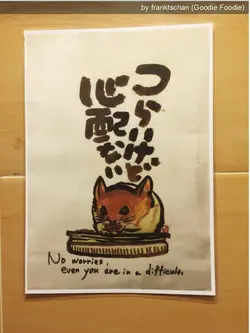 by franktschan (Goodie Foodie)
つらいけど
心配ない
No worries,
even you are in a difficult.